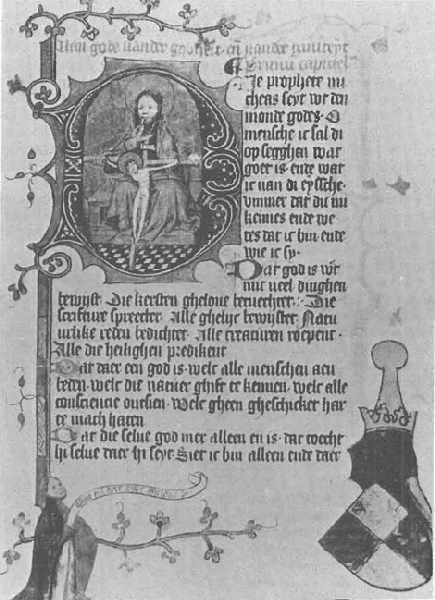 Uan gode uander godheit en uander triniteyt
Primu capittel
Ie prophete mi
cheas seyt wt den
monde godes · O
mensche ic sal di
op segghen wat
goet is ende wat
ic uan di eyssche ·
ummer dat du mi
kennes ende we
tes dat ic bin ende
wie ic sy ·
Dat god is wert
mit ueel dinghen
bewijst · Die kersten gheloue betuechtet · Die
scrifture spreectet · Alle ghelije bewijstet · Natu
urlike reden bedichtet · Alle creaturen roepent ·
Alle die heilighen predikent
Dat daer een god is · welc alle menschen aen
beden · welc die natuer ghift te kennen · welc alle
consciencie · welc gheen gheschicket har
te mach haten
Dat die selue god mer alleen en is · dat toecht
hi selue daer hi seyt Siet ic bin alleen ende daer